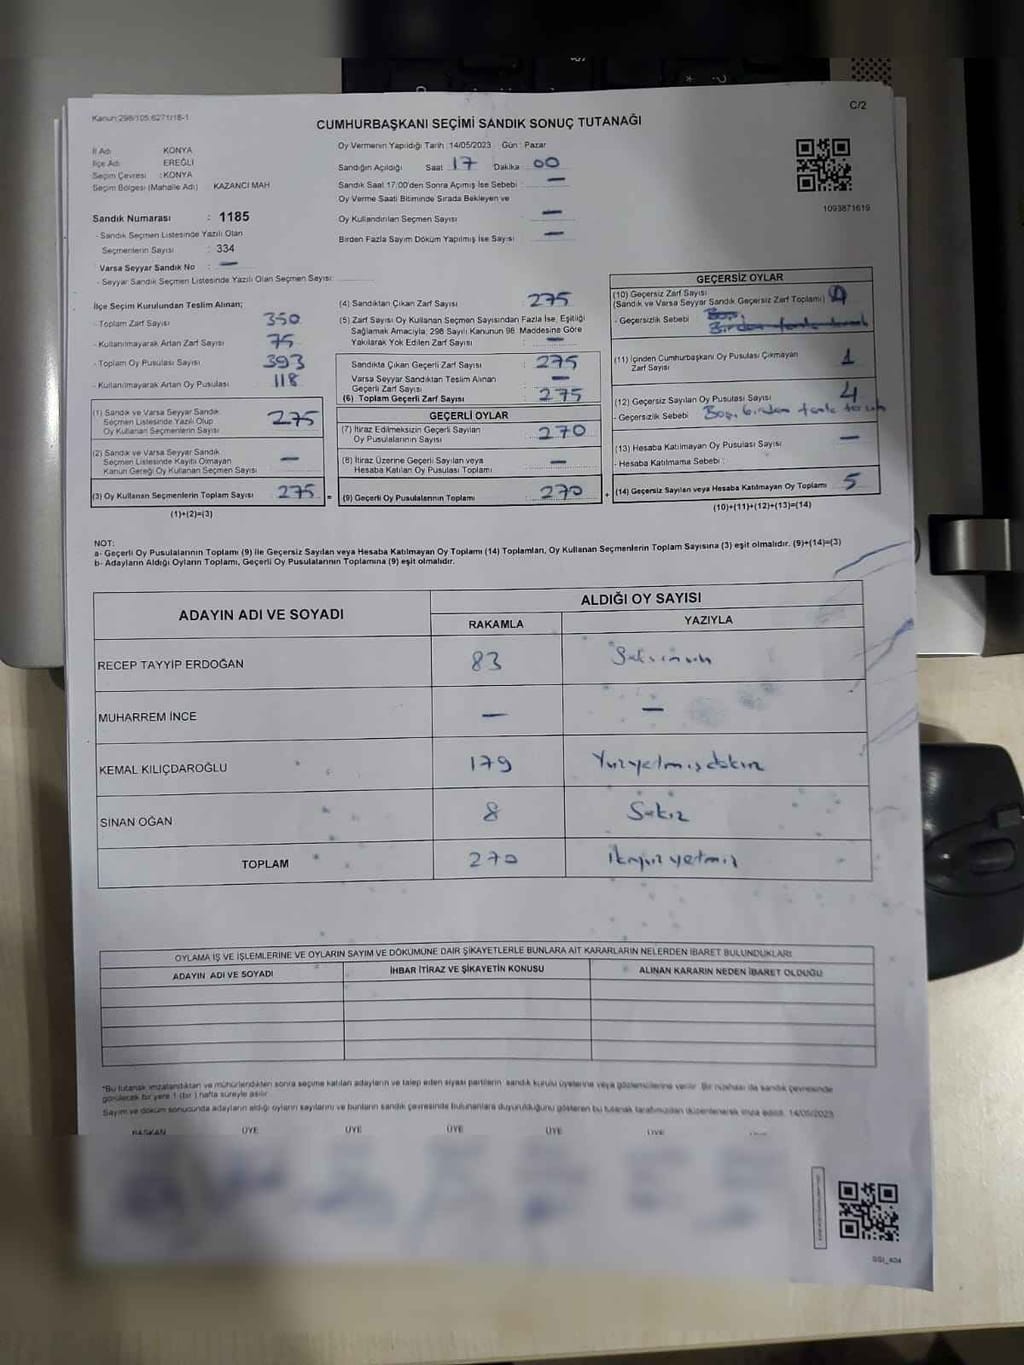 Kanun:298/105,6271/18-1
C/2
CUMHURBAŞKANI SEÇİMİ SANDIK SONUÇ TUTANAĞI
İl Adı : KONYA
İlçe Adı : EREĞLİ
Seçim Çevresi : KONYA
Seçim Bölgesi (Mahalle Adı) KAZANCI MAH
Sandık Numarası : 1185
- Sandık Seçmen Listesinde Yazılı Olan
Seçmenlerin Sayısı : 334
Varsa Seyyar Sandık No : —
- Seyyar Sandık Seçmen Listesinde Yazılı Olan Seçmen Sayısı:
Oy Vermenin Yapıldığı Tarih :14/05/2023 Gün : Pazar
Sandığın Açıldığı Saat 17 Dakika 00
Sandık Saat 17:00'den Sonra Açımış İse Sebebi : —
Oy Verme Saati Bitiminde Sırada Bekleyen ve
Oy Kullandırılan Seçmen Sayısı : —
Birden Fazla Sayım Döküm Yapılmış İse Sayısı : —
1093871619
İlçe Seçim Kurulundan Teslim Alınan;
- Toplam Zarf Sayısı : 350
- Kullanılmayarak Artan Zarf Sayısı : 75
- Toplam Oy Pusulası Sayısı : 393
- Kullanılmayarak Artan Oy Pusulası : 118
(1) Sandık ve Varsa Seyyar Sandık
Seçmen Listesinde Yazılı Olup
Oy Kullanan Seçmenlerin Sayısı 275
(2) Sandık ve Varsa Seyyar Sandık
Seçmen Listesinde Kayıtlı Olmayan
Kanun Gereği Oy Kullanan Seçmen Sayısı —
(3) Oy Kullanan Seçmenlerin Toplam Sayısı 275 =
(1)+(2)=(3)
(4) Sandıktan Çıkan Zarf Sayısı : 275
(5) Zarf Sayısı Oy Kullanan Seçmen Sayısından Fazla İse, Eşitliği
Sağlamak Amacıyla, 298 Sayılı Kanunun 98. Maddesine Göre
Yakılarak Yok Edilen Zarf Sayısı : —
Sandıkta Çıkan Geçerli Zarf Sayısı : 275
Varsa Seyyar Sandıktan Teslim Alınan
Geçerli Zarf Sayısı : —
(6) Toplam Geçerli Zarf Sayısı : 275
GEÇERLİ OYLAR
(7) İtiraz Edilmeksizin Geçerli Sayılan
Oy Pusulalarının Sayısı : 270
(8) İtiraz Üzerine Geçerli Sayılan veya
Hesaba Katılan Oy Pusulası Toplamı : —
(9) Geçerli Oy Pusulalarının Toplamı : 270 +
GEÇERSİZ OYLAR
(10) Geçersiz Zarf Sayısı
(Sandık ve Varsa Seyyar Sandık Geçersiz Zarf Toplamı)
- Geçersizlik Sebebi :
(11) İçinden Cumhurbaşkanı Oy Pusulası Çıkmayan
Zarf Sayısı : 1
(12) Geçersiz Sayılan Oy Pusulası Sayısı : 4
- Geçersizlik Sebebi : Boş, birden fazla tercih
(13) Hesaba Katılmayan Oy Pusulası Sayısı : —
- Hesaba Katılmama Sebebi :
(14) Geçersiz Sayılan veya Hesaba Katılmayan Oy Toplamı : 5
(10)+(11)+(12)+(13)=(14)
NOT:
a- Geçerli Oy Pusulalarının Toplamı (9) ile Geçersiz Sayılan veya Hesaba Katılmayan Oy Toplamı (14) Toplamları, Oy Kullanan Seçmenlerin Toplam Sayısına (3) eşit olmalıdır. (9)+(14)=(3)
b- Adayların Aldığı Oyların Toplamı, Geçerli Oy Pusulalarının Toplamına (9) eşit olmalıdır.
ADAYIN ADI VE SOYADI ALDIĞI OY SAYISI
RAKAMLA YAZIYLA
RECEP TAYYİP ERDOĞAN 83
MUHARREM İNCE — —
KEMAL KILIÇDAROĞLU 179 Yüzyetmişdokuz
SİNAN OĞAN 8 Sekiz
TOPLAM 270 ikiyüzyetmiş
OYLAMA İŞ VE İŞLEMLERİNE VE OYLARIN SAYIM VE DÖKÜMÜNE DAİR ŞİKAYETLERLE BUNLARA AİT KARARLARIN NELERDEN İBARET BULUNDUKLARI
ADAYIN ADI VE SOYADI İHBAR İTİRAZ VE ŞİKAYETİN KONUSU ALINAN KARARIN NEDEN İBARET OLDUĞU
*Bu tutanak imzalandıktan ve mühürlendikten sonra seçime katılan adayların ve talep eden siyasi partilerin sandık kurulu üyelerine veya gözlemcilerine verilir. Bir nüshası da sandık çevresinde
görülecek bir yere 1 (bir ) hafta süreyle asılır.
Sayım ve döküm sonucunda adayların aldığı oyların sayılarını ve bunların sandık çevresinde bulunanlara duyurulduğunu gösteren bu tutanak tarafımızdan düzenlenerek imza edildi. 14/05/2023
BAŞKAN ÜYE ÜYE ÜYE ÜYE ÜYE
SSI_404